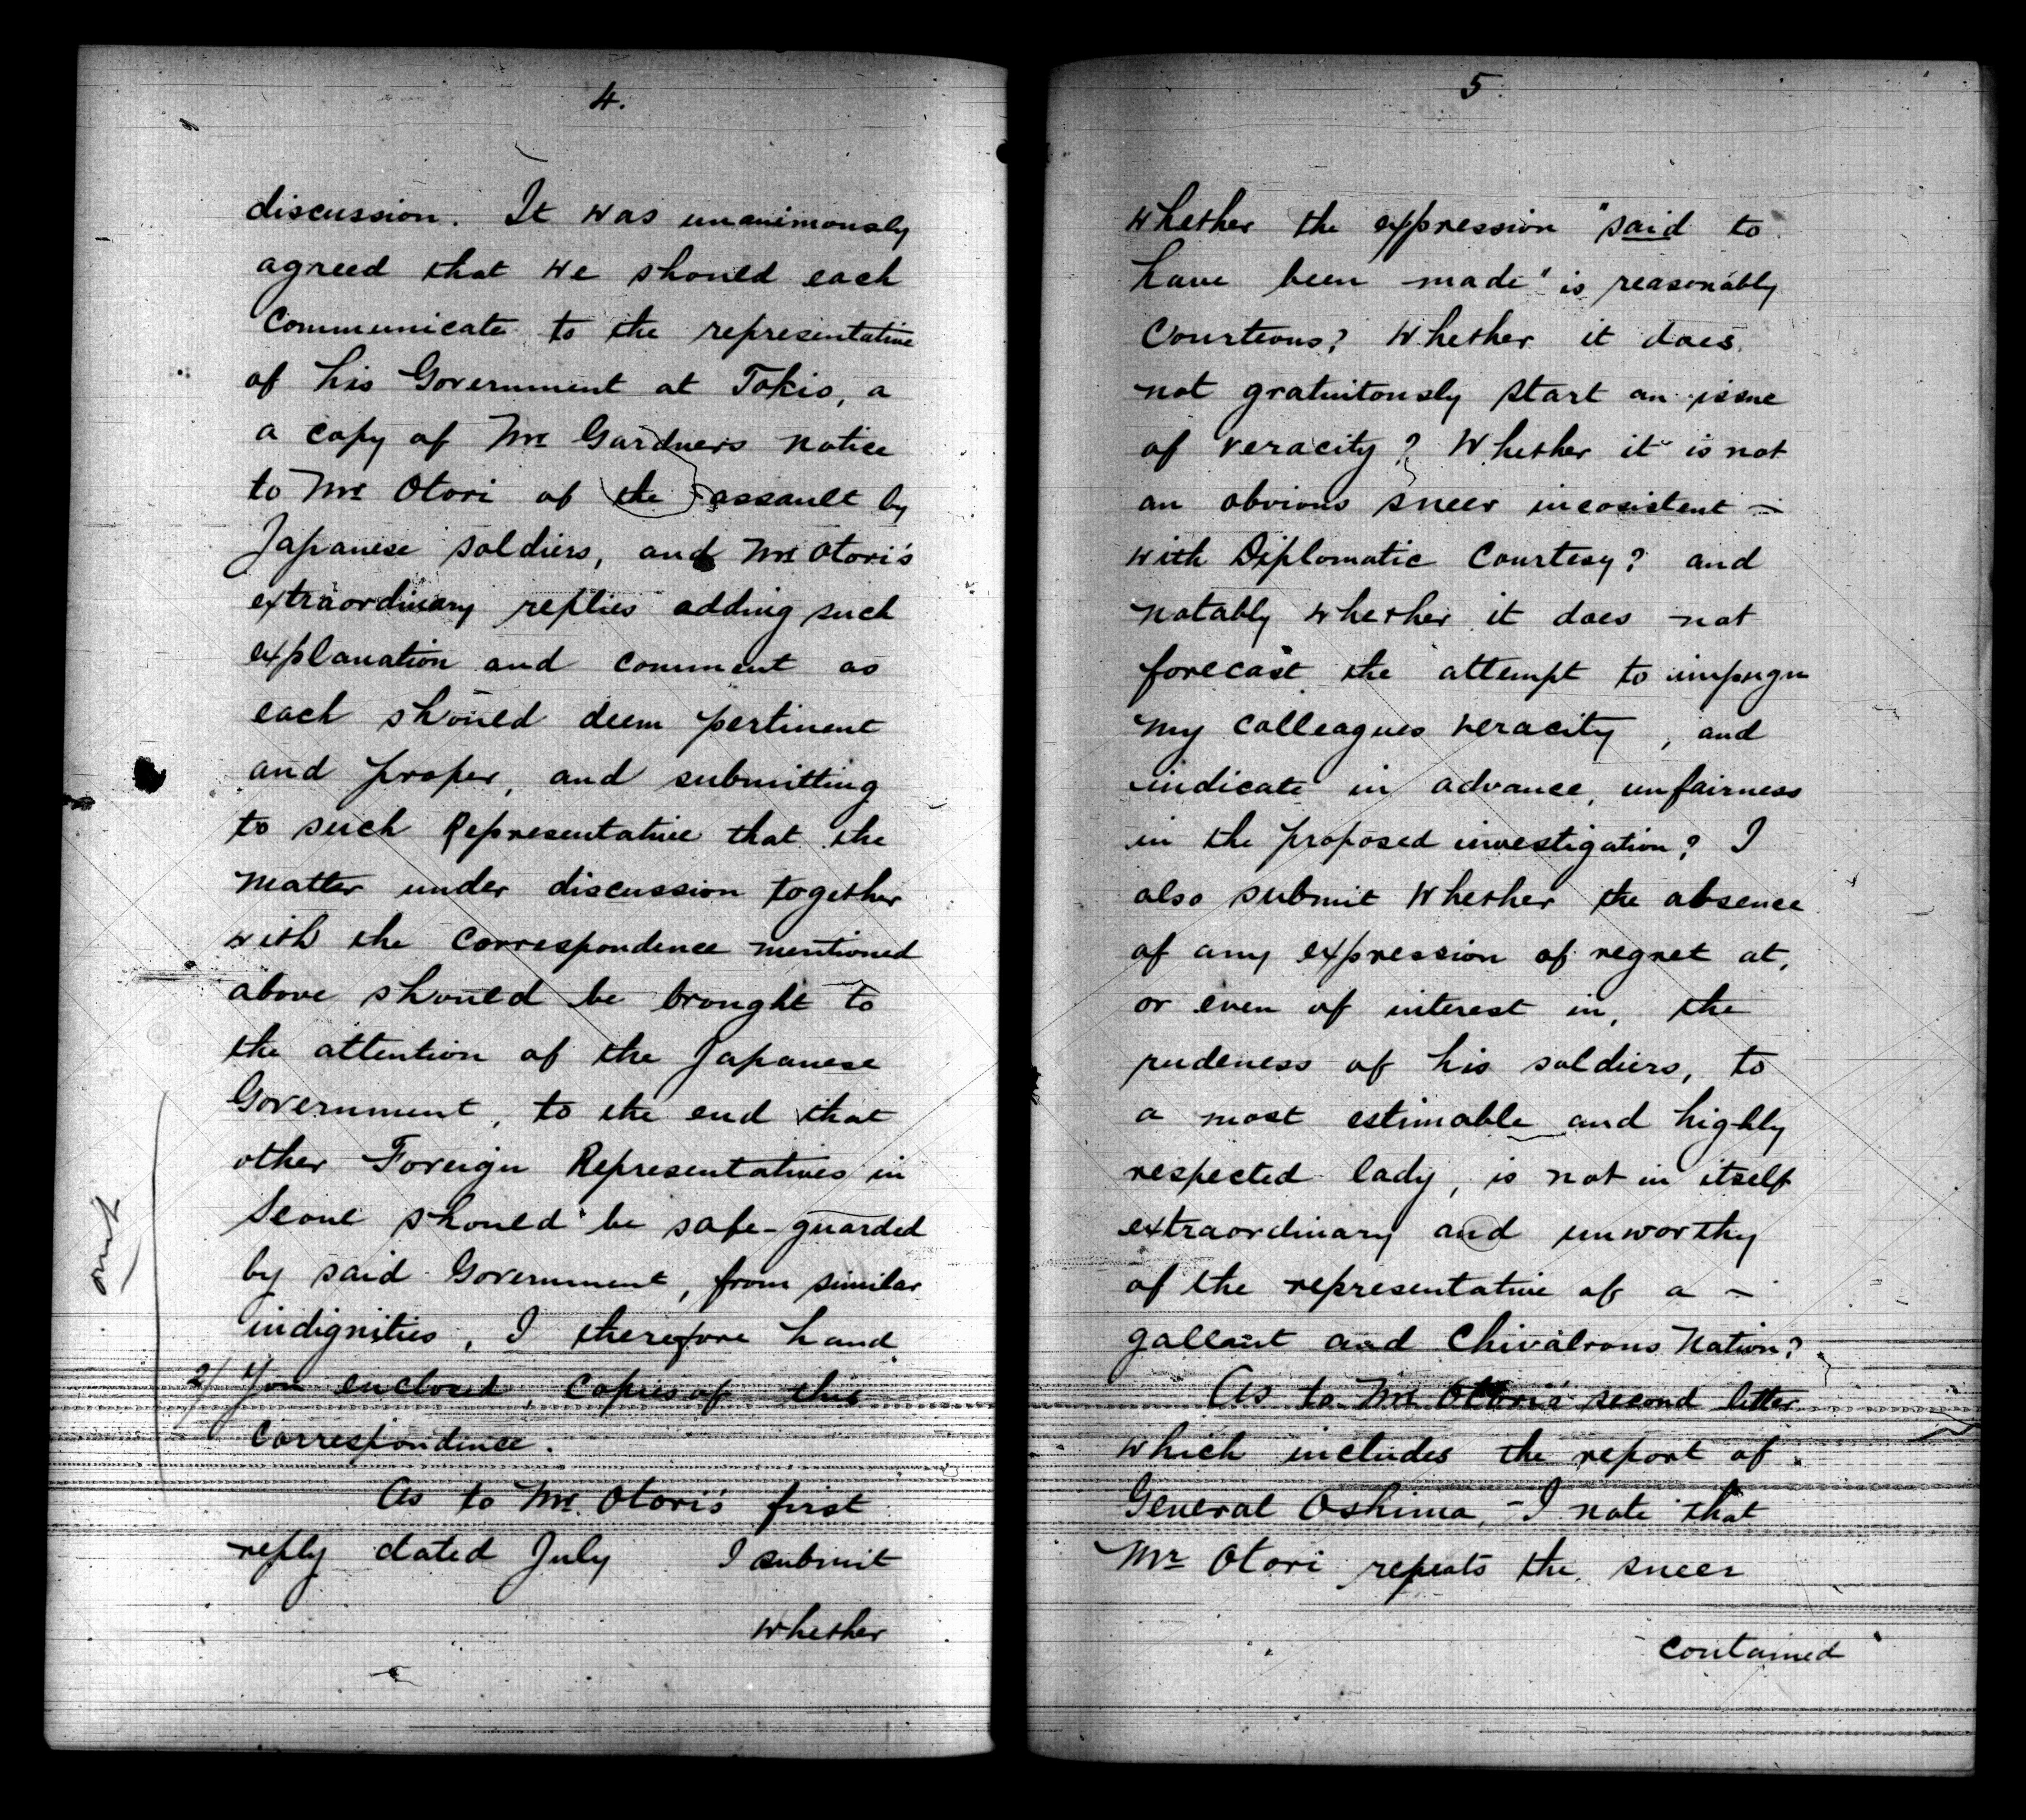 4.
discussion. It was unanimously
agreed that we should each
Communicate to the representative
of his Government at Tokio, a
a copy of Mr Gardners notice
to Mr Otori of the assault by
Japanese soldiers, and Mr Otori's
extraordinary replies adding such
explanation and comment as
each should deem pertinent
and proper, and submitting
to such Representative that the
matter under discussion together
with the Correspondence mentioned
above should be brought to
the attention of the Japanese
Government, to the end that
other Foreign Representatives in
Seoul should be safe-guarded
by said Government, from similar
indignities, I therefore hand
2/ You enclosed, Copies of this
Correspondence.
omit
As to Mr. Otori's first
reply dated July I submit
whether
5.
whether the expression "said to
have been made" is reasonably
Courteous? Whether it does
not gratuitously start an issue
of veracity? Whether it is not
an obvious sneer incosistent -
with Diplomatic Courtesy? and
notably whether it does not
forecast the attempt to impugn
my colleagues veracity, and
indicate in advance, unfairness
in the proposed investigation? I
also submit Whether the absence
of any expression of regret at,
or even of interest in, the
rudeness of his soldiers, to
a most estimable and highly
respected lady, is not in itself
extraordinary and unworthy
of the representative of a -
gallant and Chivalrous Nation?
As to Mr Otori's second letter
which includes the report of
General Oshima, - I note that
Mr Otori repeats the sneer
contained